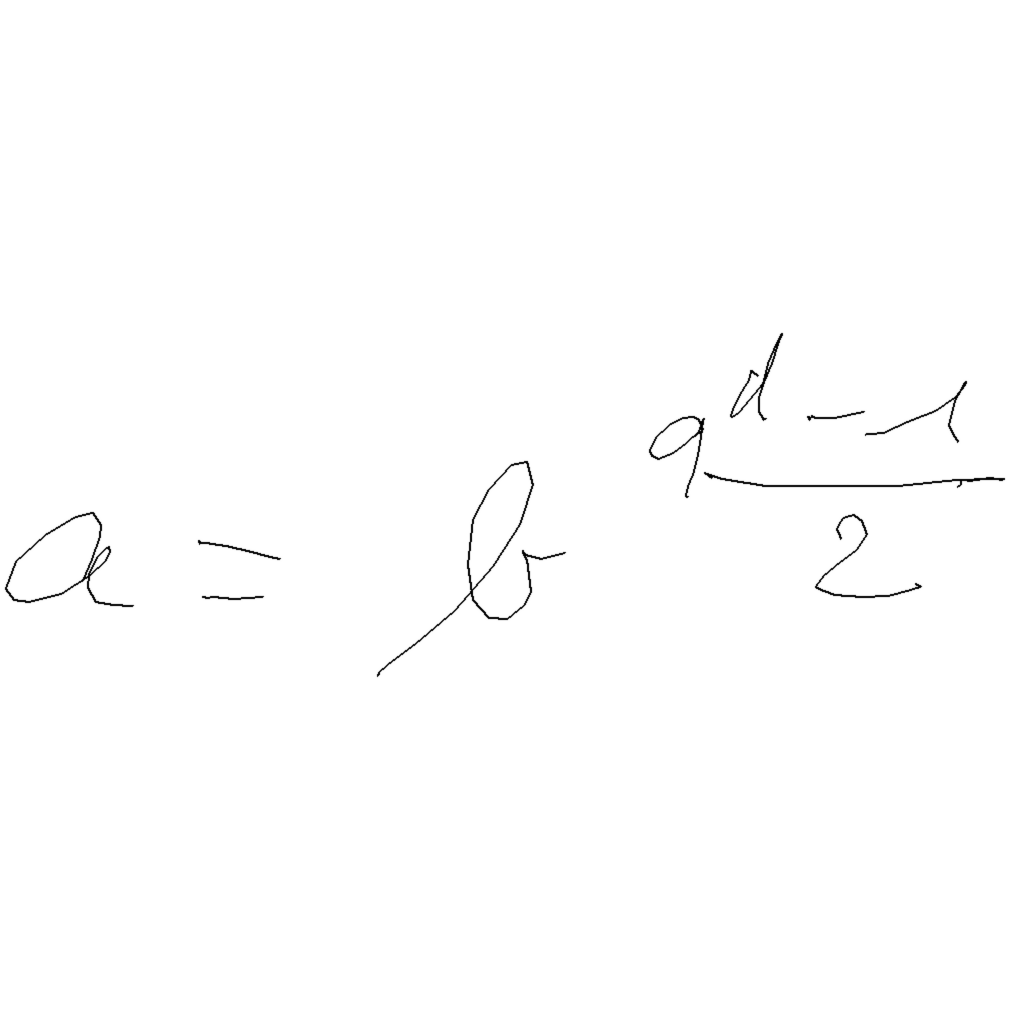 a = b^{\frac{q^{d}-1}{2}}